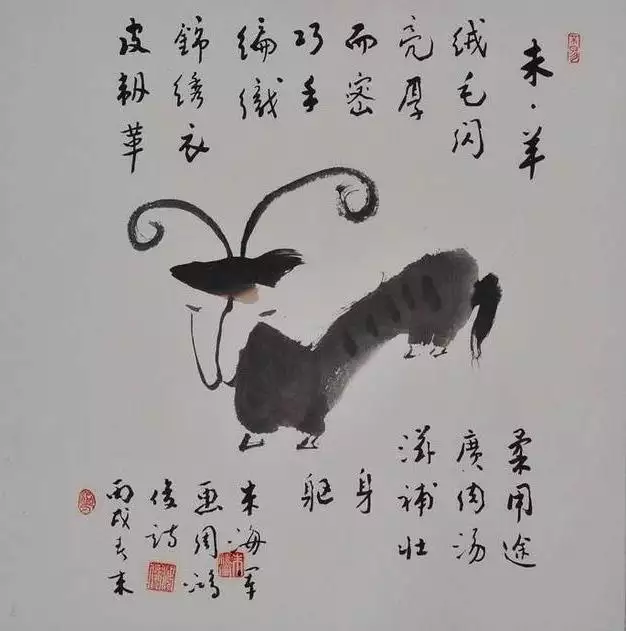 未·羊
绒毛闪
亮厚
而密
巧手
编織
錦绣衣
皮韌革
柔用途
廣肉汤
滋補壮
身
躯
朱海军
画周鸿
俊诗
丙戌春末